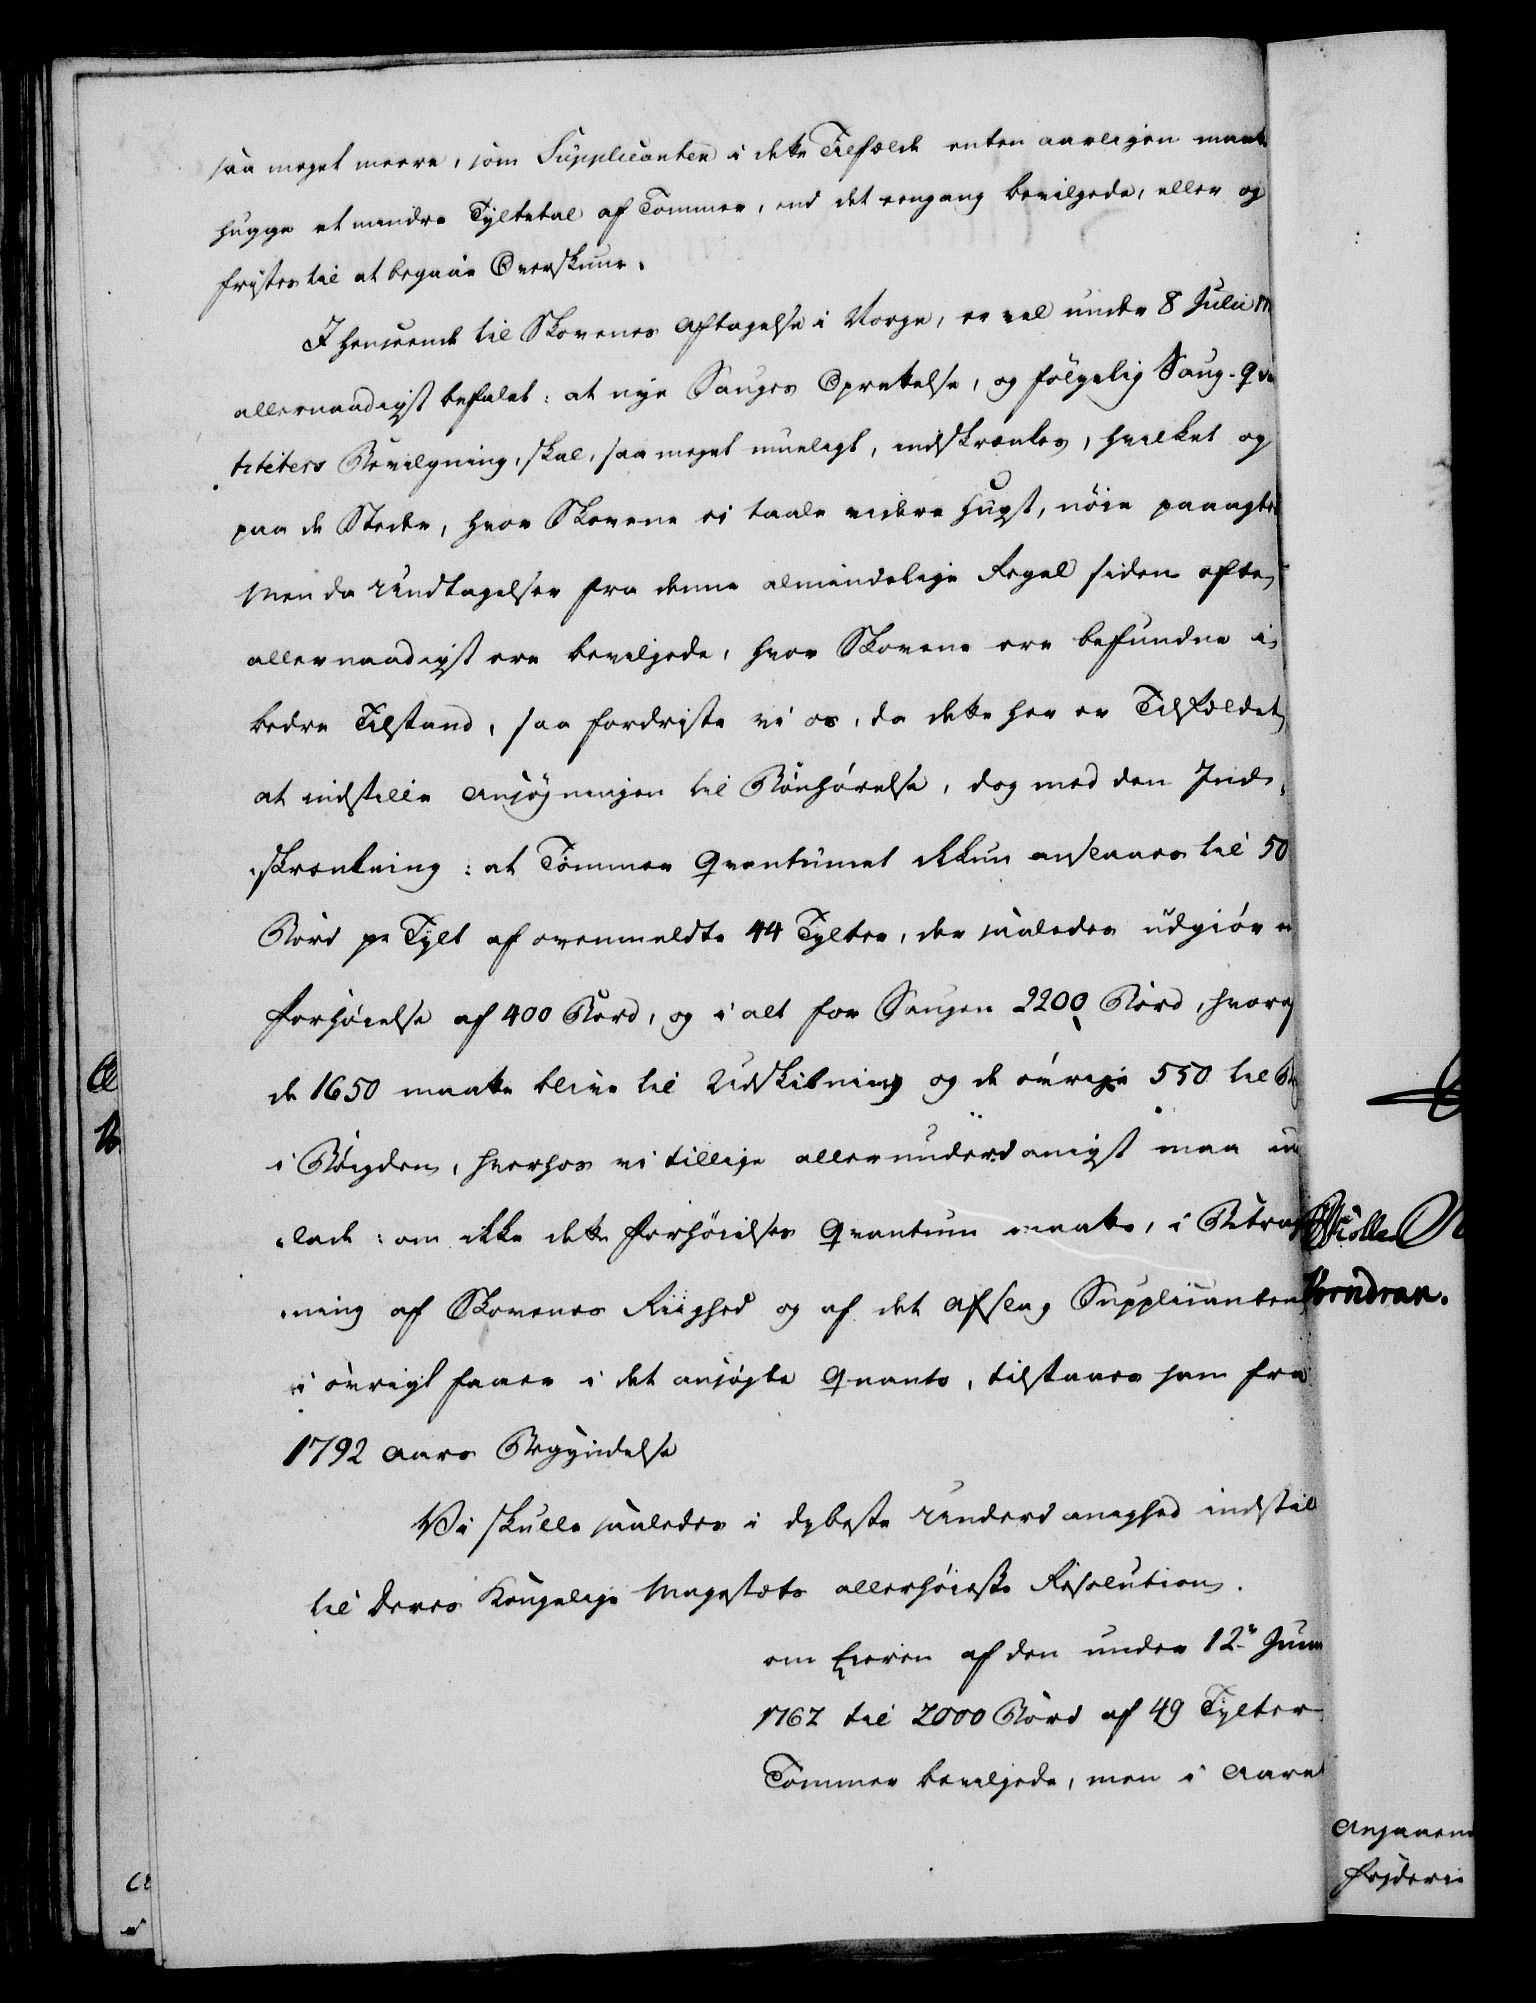 saa meget meere, som Supplicanten i dette Tilfælde enten aarligen maatte
hugge et mindre Tyltetal af Tømmer, end det eengang bevilgede, eller og
fristes til at begaae Overskuur.
I Henseende til Skovenes Aftagelse i Norge, er vel under 8 Julii 17
allernaadigst befalet: at nye Sauges Oprettelse, og følgelig Saug-Qva
titeters Bevilgning, skal, saa meget mueligt, indskrænkes, hvilket og
paa de Steder, hvor Skovene ei taale videre Hugst, nöie paaagtes
Men da Undtagelser fra denne almindelige Regel siden ofte
allernaadigst ere bevilgede, hvor Skovene ere befundne i
bedre Tilstand, saa fordriste vi os, da dette her er Tilfældet,
at indstille Ansøgningen til Bönhørelse, dog med den Ind-
skrænkning: at Tømmer Qvantumet ikkun ansees til 50
Bord pr Tylt af ovenmeldte 44 Tylter, der saaledes udgiør en
Forhøielse af 400 Bord, og i alt for Saugen 2200 Bord, hvoraf
de 1650 maatte blive til Udskibning og de øvrige 550 til
i Bøigden, hvorhos vi tillige allerunderdanigst maa
lade: om ikke dette Forhøielses Qvantum maatte, i Betragt
ning af Skovenes Riighed og af det Afslag Supplicanten
i øvrigt faaer i det ansøgte Qvanto, tilstaaes ham fra
1792 Aars Begyndelse
Vi skulle saaledes i dybeste Underdanighed indstil
til Deres Kongelige Majestæts allerhøieste Resolution.
om Eieren af den under 12te Junii
1762 til 2000 Bord af 49 Tylter
Tømmer bevilgede, men i Aaret
Müller
Vorndran.
Angaaend
Frideri